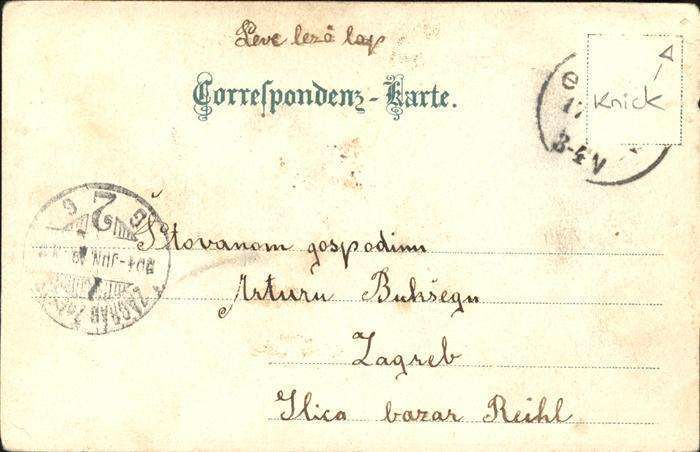 Leve lező lap
Correspondenz-Karte.
Knick
3-4 V
Štovanom gospodinu
Arturu Bukšegu
Zagreb
Ilica bazar Reihl
ZAGRÁB